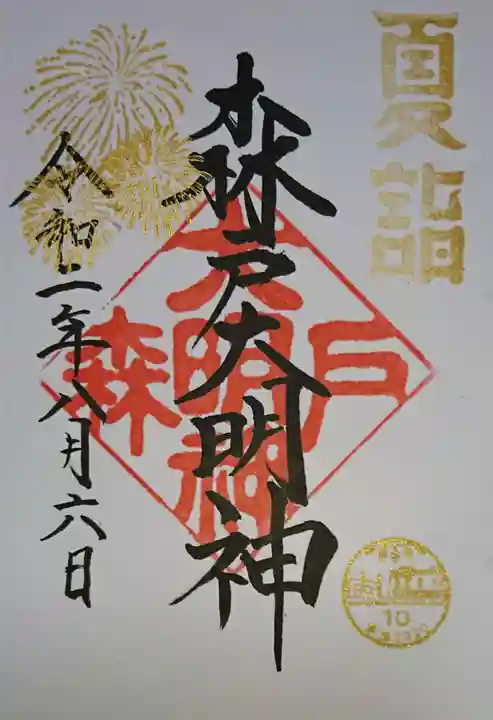 夏詣
森戸大明神
森戸大明神
令和二年八月六日
10